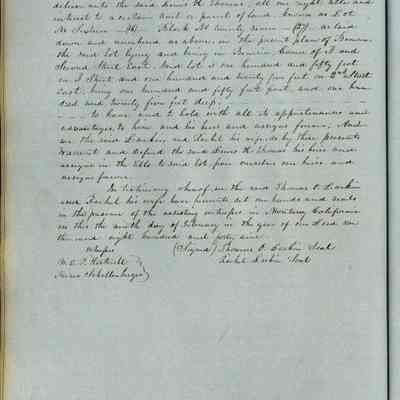 deliver unto the said Lewis H. Thomas, all our right title and
interest to a certain Lot or parcel of land, known as Lot
No Sixteen (16) Block No twenty seven (27) as laid
down and numbered as above in the present plan of Benicia
the said lot lying and being in Benicia corner of I and
Second Street East. Said lot is one hundred and fifty feet
on I Street and one hundred and twenty five feet on 2nd Street
East, being one hundred and fifty feet front and one hun-
dred and twenty five feet deep.
To have and to hold with all its appurtenances and
advantages to him and his heirs and assigns forever, And
we the said Larkin, and Rachel his wife do by these presents
warrant and defend the said Lewis H. Thomas his heirs and
assigns in the title to said lot from ourselves our heirs and
assigns forever.
In testimony whereof, we the said Thomas O. Larkin
and Rachel his wife have hereunto set our hands and seals
in the presence of the subscribing witnesses in Monterey California
on this the ninth day of February in the year of our Lord one
thousand eight hundred and forty nine.
Witness (Signed) Thomas O. Larkin Seal
W. E. P. Hartnell Rachel Larkin Seal